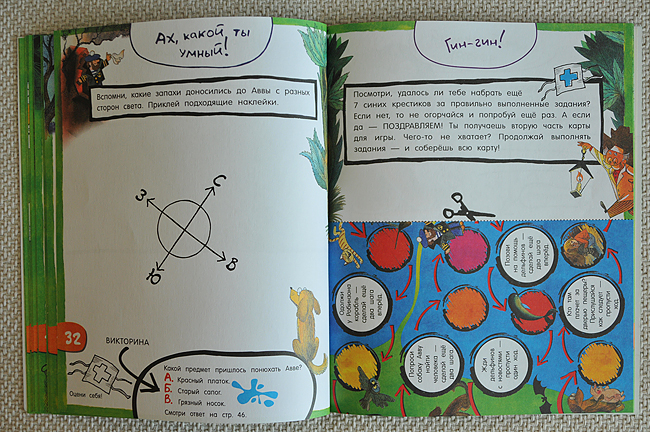 Ах, какой ты
умный!
Вспомни, какие запахи доносились до Аввы с разных
сторон света. Приклей подходящие наклейки.
С
З
Ю
В
32
ВИКТОРИНА
Оцени себя!
Какой предмет пришлось понюхать Авве?
А. Красный платок.
Б. Старый сапог.
В. Грязный носок.
Смотри ответ на стр. 46.
Гин-гин!
Посмотри, удалось ли тебе набрать ещё
7 синих крестиков за правильно выполненные задания?
Если нет, то не огорчайся и попробуй ещё раз. А если
да — ПОЗДРАВЛЯЕМ! Ты получаешь вторую часть карты
для игры. Чего-то не хватает? Продолжай выполнять
задания — и соберёшь всю карту!
Позови
на помощь
дельфинов —
сделай ещё
два шага
вперёд.
Одолжи
у Робинзона
корабль —
сделай ещё
два шага
вперёд.
Кто там
плачет за
дверью пещеры?
Прислушайся
как следует —
пропусти
ход.
Попроси
собаку Авву
найти
человека —
сделай ещё
два шага
Жди
дельфинов
с новостями —
пропусти
один ход.